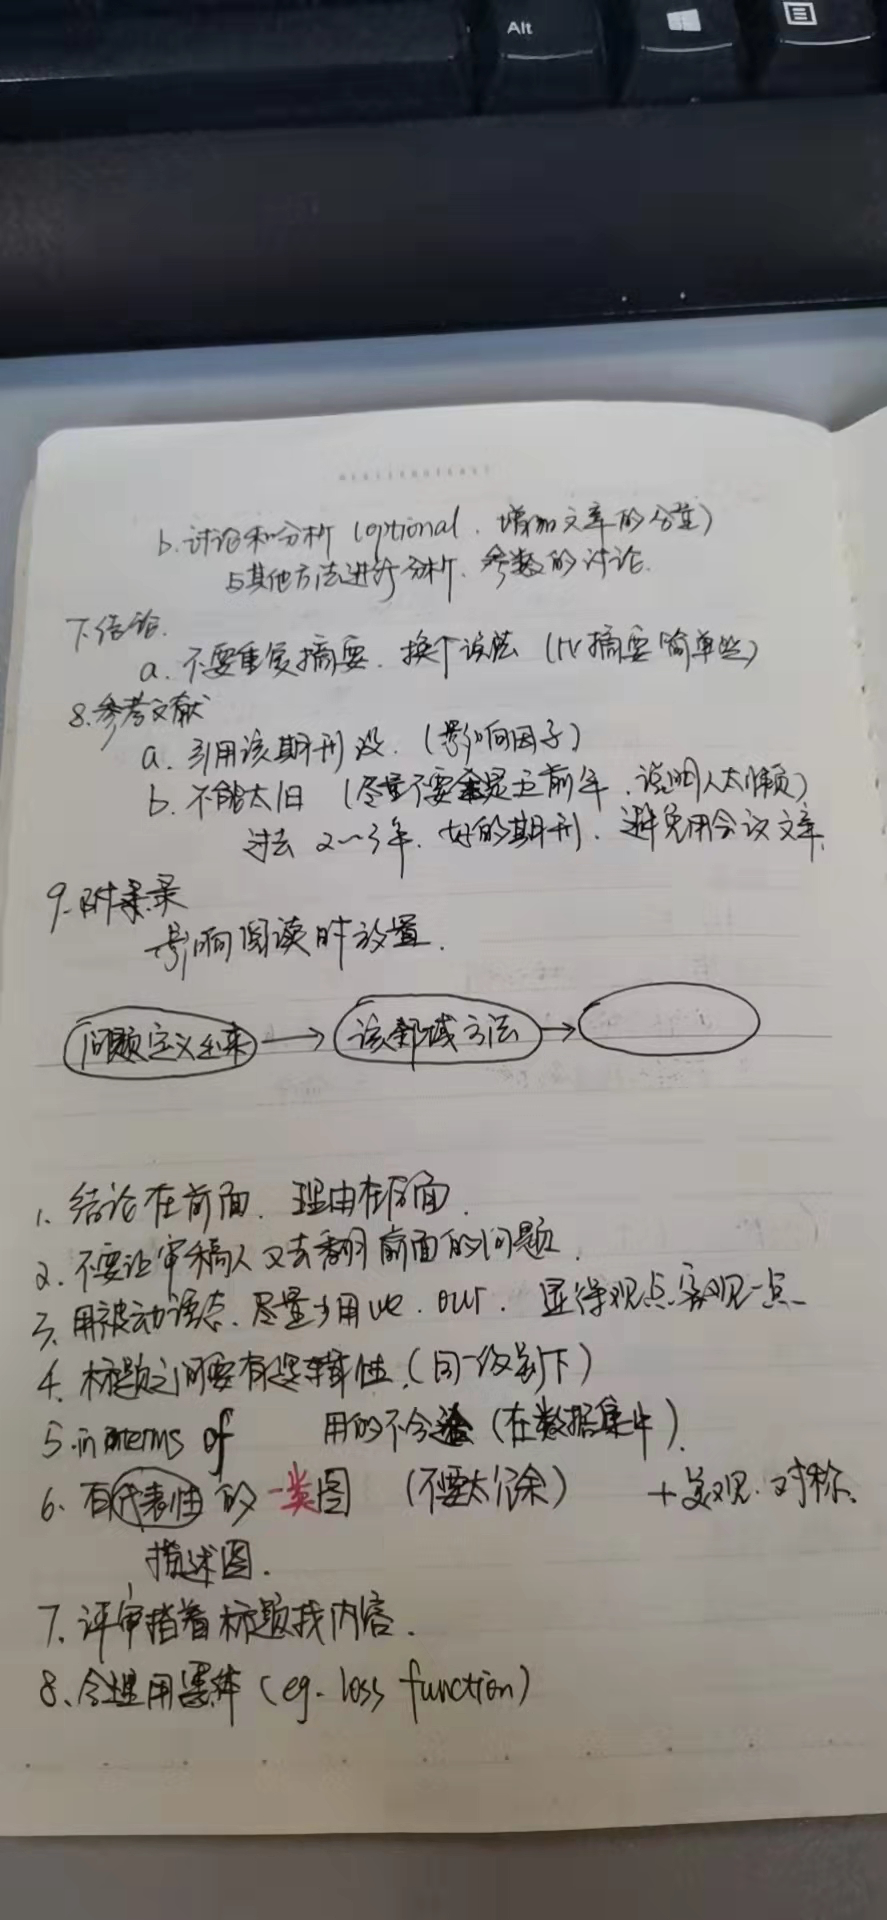 Alt
b. 讨论和分析 (optional. 增加文章的分量)
与其他方法进行分析. 参数的讨论.
7. 结论.
a. 不要重复摘要. 换个说法 (比摘要简单些)
8. 参考文献
a. 引用该期刊 没. (影响因子)
b. 不能太旧 (尽量不要全是五前年. 说明人太懒)
过去 2~3年. 好的期刊. 避免用会议文章.
9. 附录
影响阅读时放置.
问题定义出来 → 该邻域方法 →
1. 结论在前面. 理由在后面.
2. 不要让审稿人又去翻前面的问题.
3. 用被动语态. 尽量少用 we. our. 显得观点客观一点
4. 标题之间要有逻辑性. (同一级别下)
5. in terms of 用的不合适 (在数据集中).
6. 有代表性的一类图 (不要太冗余) + 美观. 对称.
描述图.
7. 评审指着标题找内容.
8. 合理用黑体 (eg. loss function)